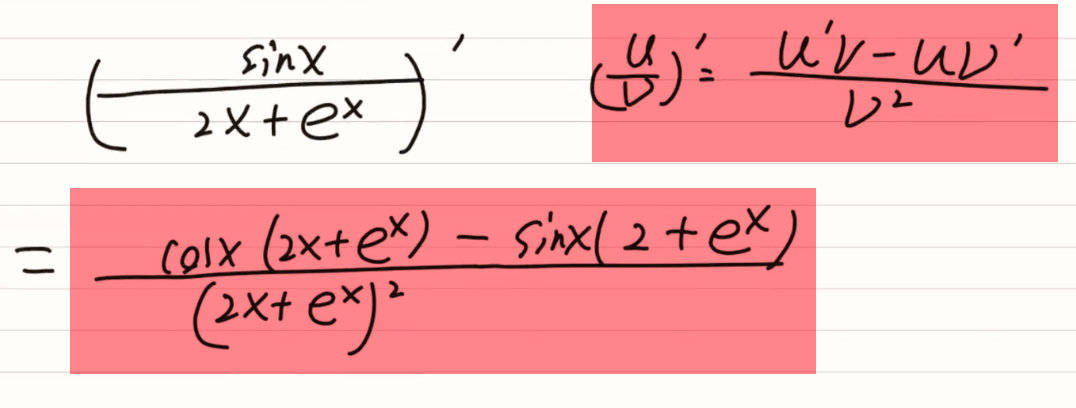 (sinx / (2x+e^x))′   (u/v)′ = (u′v−uv′) / v²
= (cosx (2x+e^x) − sinx(2+e^x)) / (2x+e^x)²